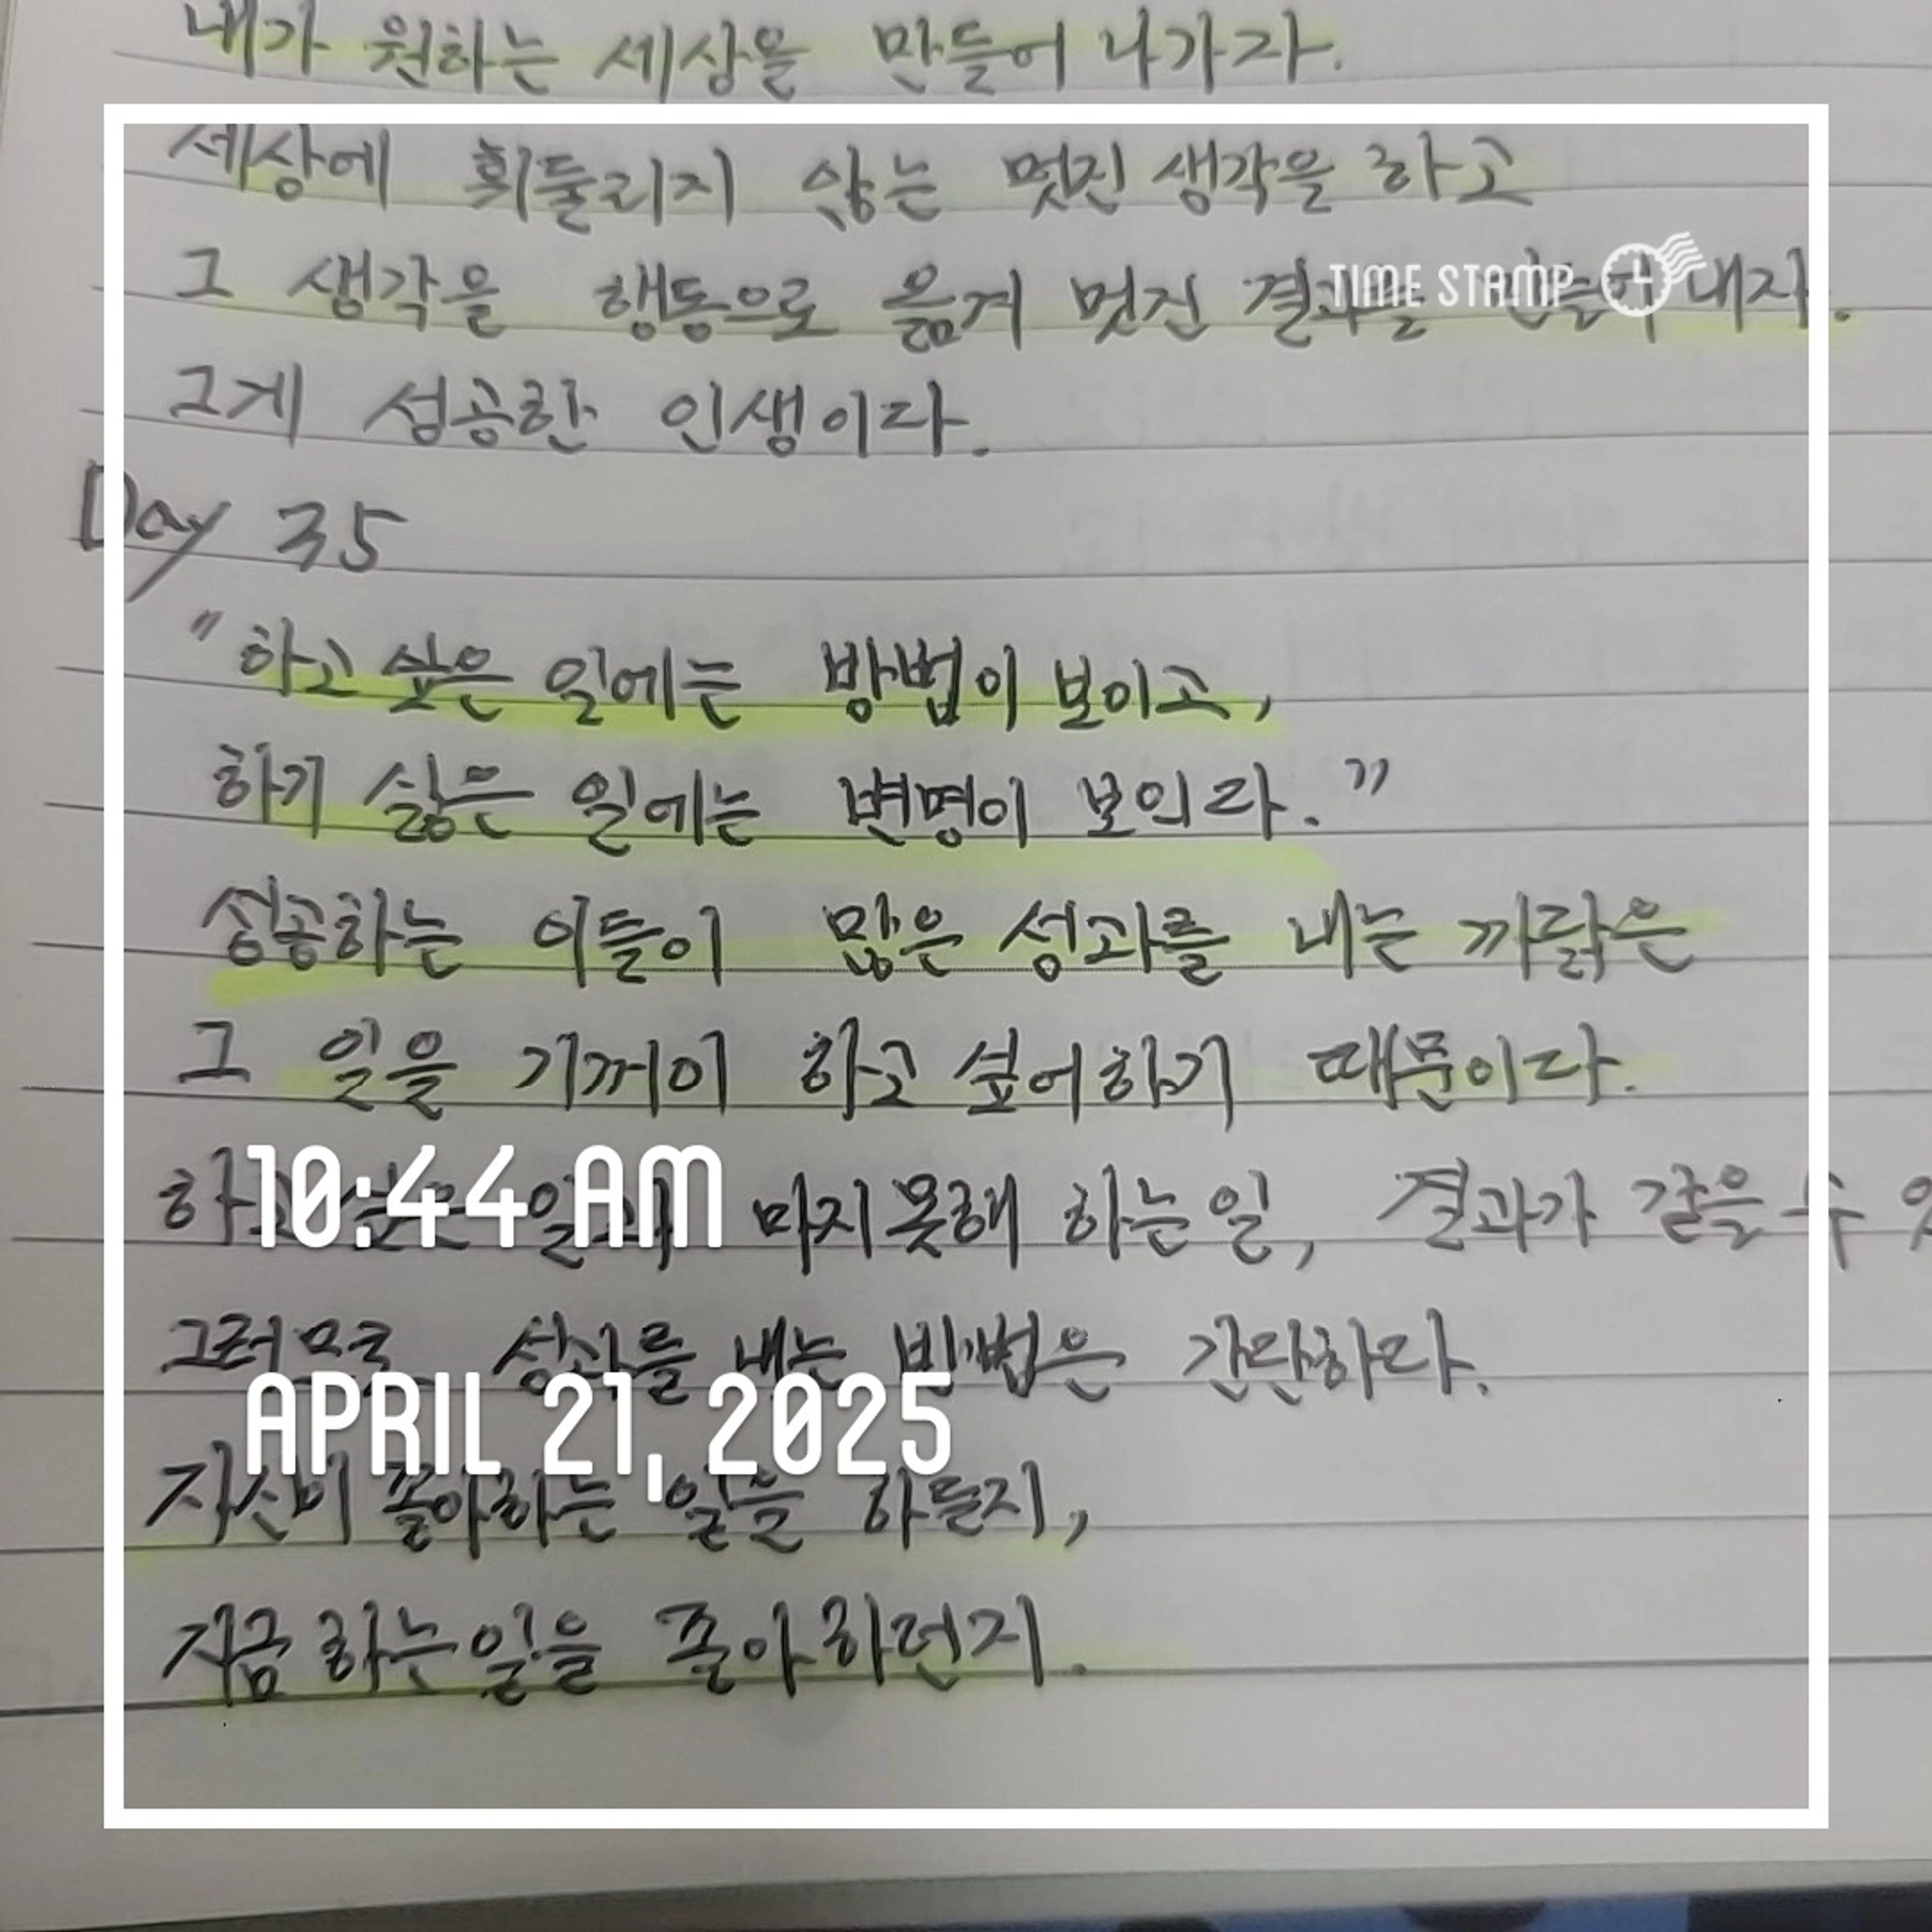 내가 원하는 세상을 만들어 나가자.
세상에 휘둘리지 않는 멋진 생각을 하고
TIME STAMP
그 생각을 행동으로 옮겨 멋진 결과를 만들어 내자.
그게 성공한 인생이다.
Day 35
"하고 싶은 일에는 방법이 보이고,
하기 싫은 일에는 변명이 보인다."
성공하는 이들이 많은 성과를 내는 까닭은
그 일을 기꺼이 하고 싶어하기 때문이다.
10:44 AM
하고 싶은 일과 마지못해 하는 일, 결과가 같을 수
그러므로 성과를 내는 방법은 간단하다.
APRIL 21, 2025
자신이 좋아하는 일을 하든지,
지금 하는 일을 좋아하던지.